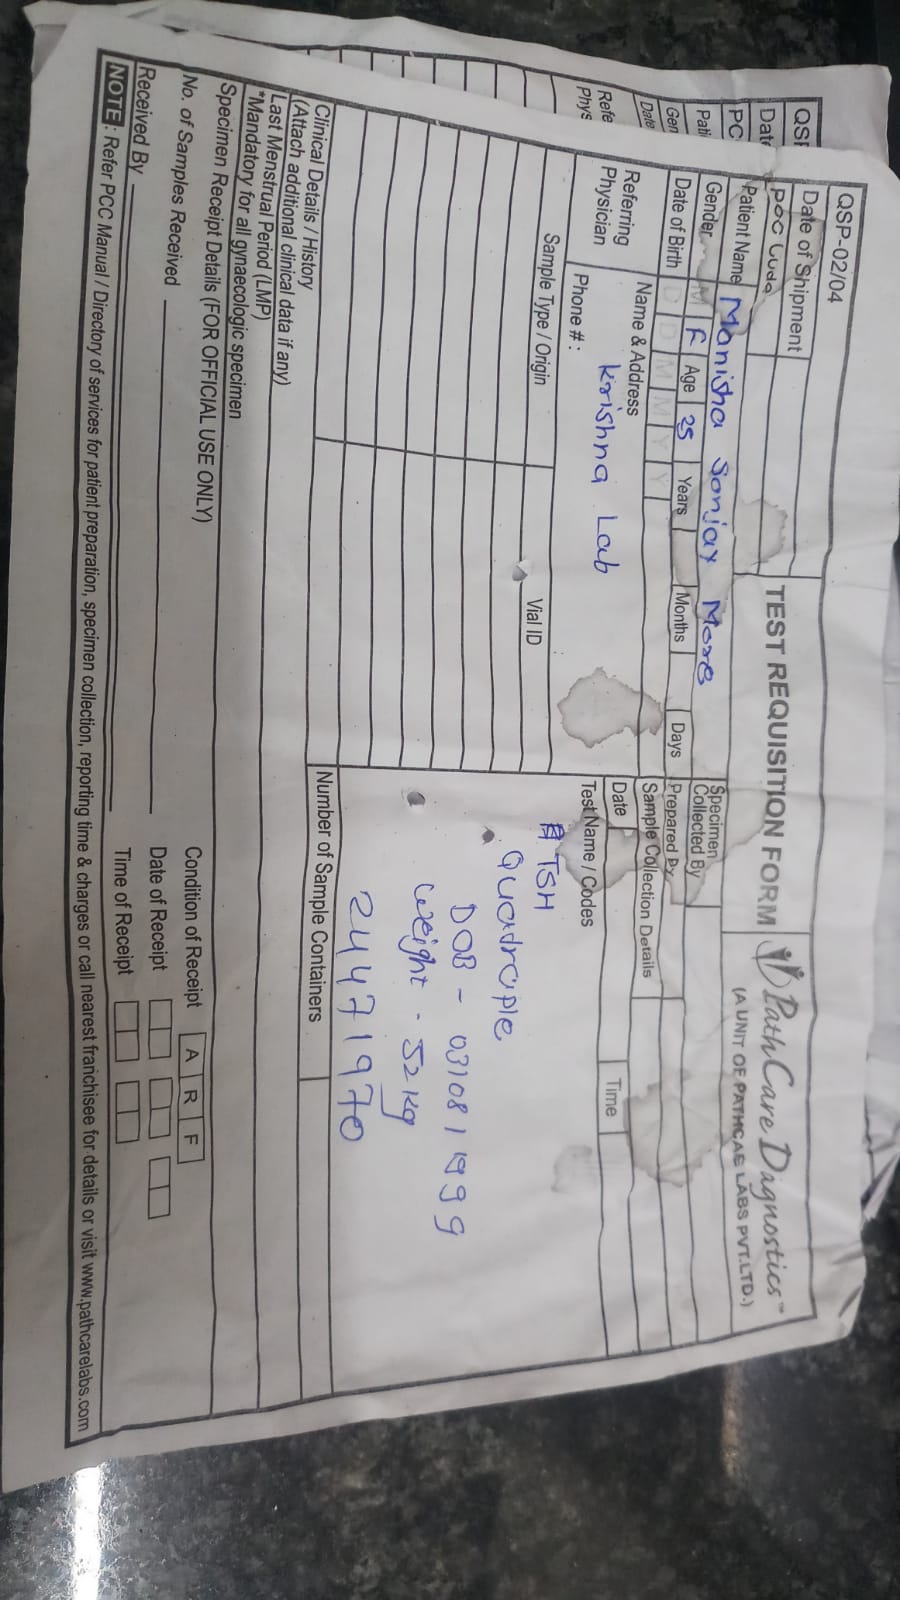 QSP-02/04
Date of Shipment
PCC Code
TEST REQUISITION FORM
PathCare Dagnostics™
(A UNIT OF PATHCAE LABS PVT.LTD.)
Patient Name Manisha Sanjay More
Gender M F Age 25 Years Months Days
Date of Birth D D M M Y Y
Specimen
Collected By
Prepared By
Referring
Physician
Name & Address
Krishna Lab
Phone #:
Sample Collection Details
Date Time
Sample Type / Origin Vial ID Test Name / Codes
TSH
Quadraple
DOB - 03/08/1999
Weight - 52 kg
24471970
Clinical Details / History
(Attach additional clinical data if any)
Number of Sample Containers
Last Menstrual Period (LMP)
*Mandatory for all gynaecologic specimen
Specimen Receipt Details (FOR OFFICIAL USE ONLY)
No. of Samples Received Condition of Receipt A R F
Date of Receipt
Received By Time of Receipt
NOTE: Refer PCC Manual / Directory of services for patient preparation, specimen collection, reporting time & charges or call nearest franchisee for details or visit www.pathcarelabs.com